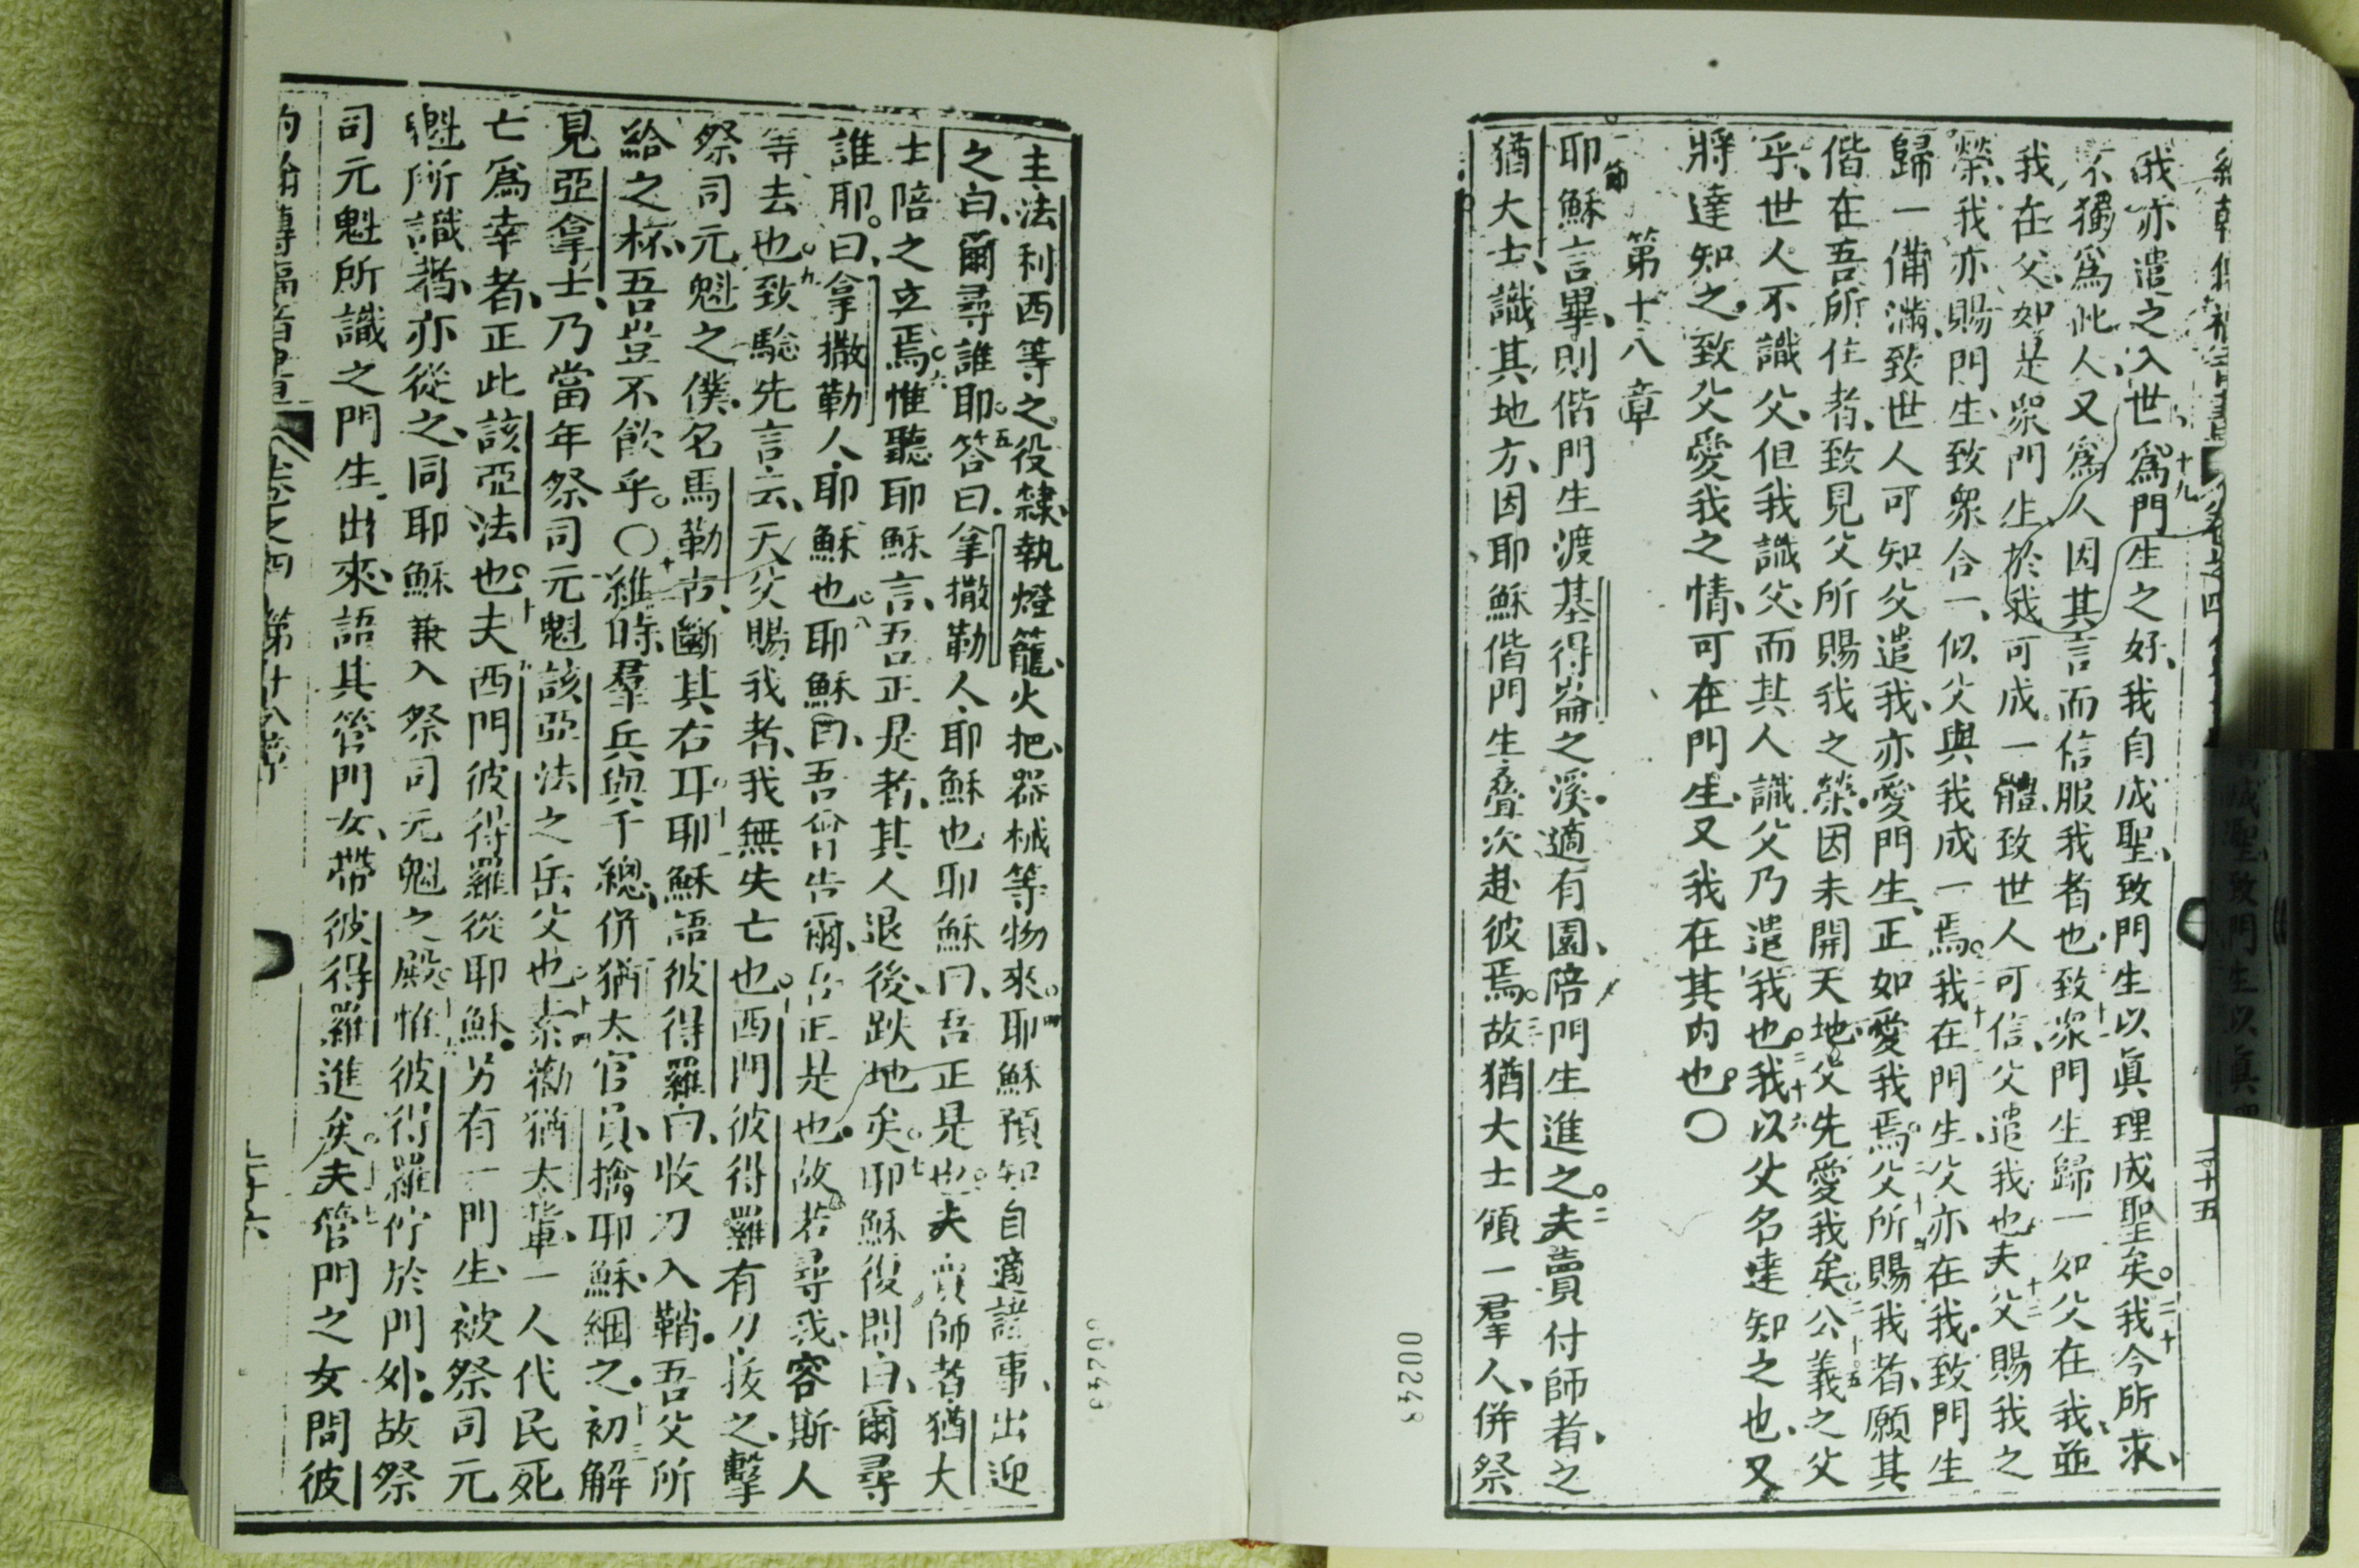 我亦遣之入世十九爲門生之好我自成聖致門生以眞理成聖矣二十我今所求
不獨爲此人又爲人因其言而信服我者也致衆門生歸一如父在我並
我在父如是衆門生於我可成一體致世人可信父遣我也夫父賜我之
榮我亦賜門生致衆合一似父與我成一焉我在門生父亦在我致門生
歸一備滿致世人可知父遣我亦愛門生正如愛我焉父所賜我者願其
偕在吾所住者致見父所賜我之榮因未開天地父先愛我矣二十五公義之父
乎世人不識父但我識父而其人識父乃遣我也二十六我以父名達知之也又
將達知之致父愛我之情可在門生又我在其內也〇
第十八章
一節耶穌言畢則偕門生渡基得崙之溪適有園陪門生進之二夫賣付師者之
猶大士識其地方因耶穌偕門生疊次赴彼焉三故猶大士領一羣人併祭
00248
主法利西等之役隸執燈籠火把器械等物來四耶穌預知自適諸事出迎
之白爾尋誰耶五答曰拿撒勒人耶穌也耶穌曰吾正是也夫賣師者猶大
士陪之立焉六惟聽耶穌言吾正是者其人退後跌地矣七耶穌復問白爾尋
誰耶曰拿撒勒人耶穌也八耶穌曰吾曾告爾吾正是也故若尋我容斯人
等去也九致驗先言云天父賜我者我無失亡也十西門彼得羅有刀拔之擊
祭司元魁之僕名馬勒古斷其右耳十一耶穌語彼得羅白收刀入鞘吾父所
給之杯吾豈不飲乎〇十二維時羣兵與千總併猶太官員擒耶穌綑之十三初解
見亞拿士乃當年祭司元魁該亞法之岳父也十四素勸猶太輩一人代民死
亡爲幸者正此該亞法也十五夫西門彼得羅從耶穌另有一門生被祭司元
魁所識者亦從之同耶穌兼入祭司元魁之殿十六惟彼得羅佇於門外故祭
司元魁所識之門生出來語其管門女帶彼得羅進矣十七夫管門之女問彼
卷之四 第十八章